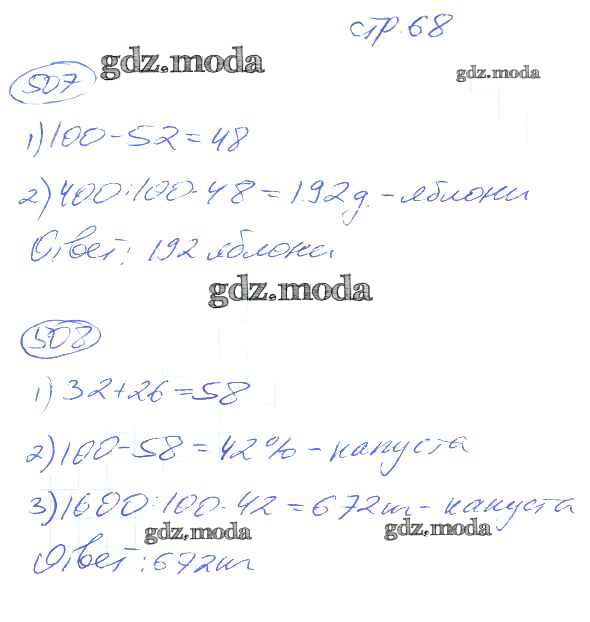 стр. 68
gdz.moda
gdz.moda
507
1) 100 - 52 = 48
2) 400 : 100 · 48 = 192 д. - яблони
Ответ: 192 яблони
gdz.moda
508
1) 32 + 26 = 58
2) 100 - 58 = 42 % - капуста
3) 1600 : 100 · 42 = 672 т - капуста
gdz.moda
gdz.moda
Ответ: 672 т